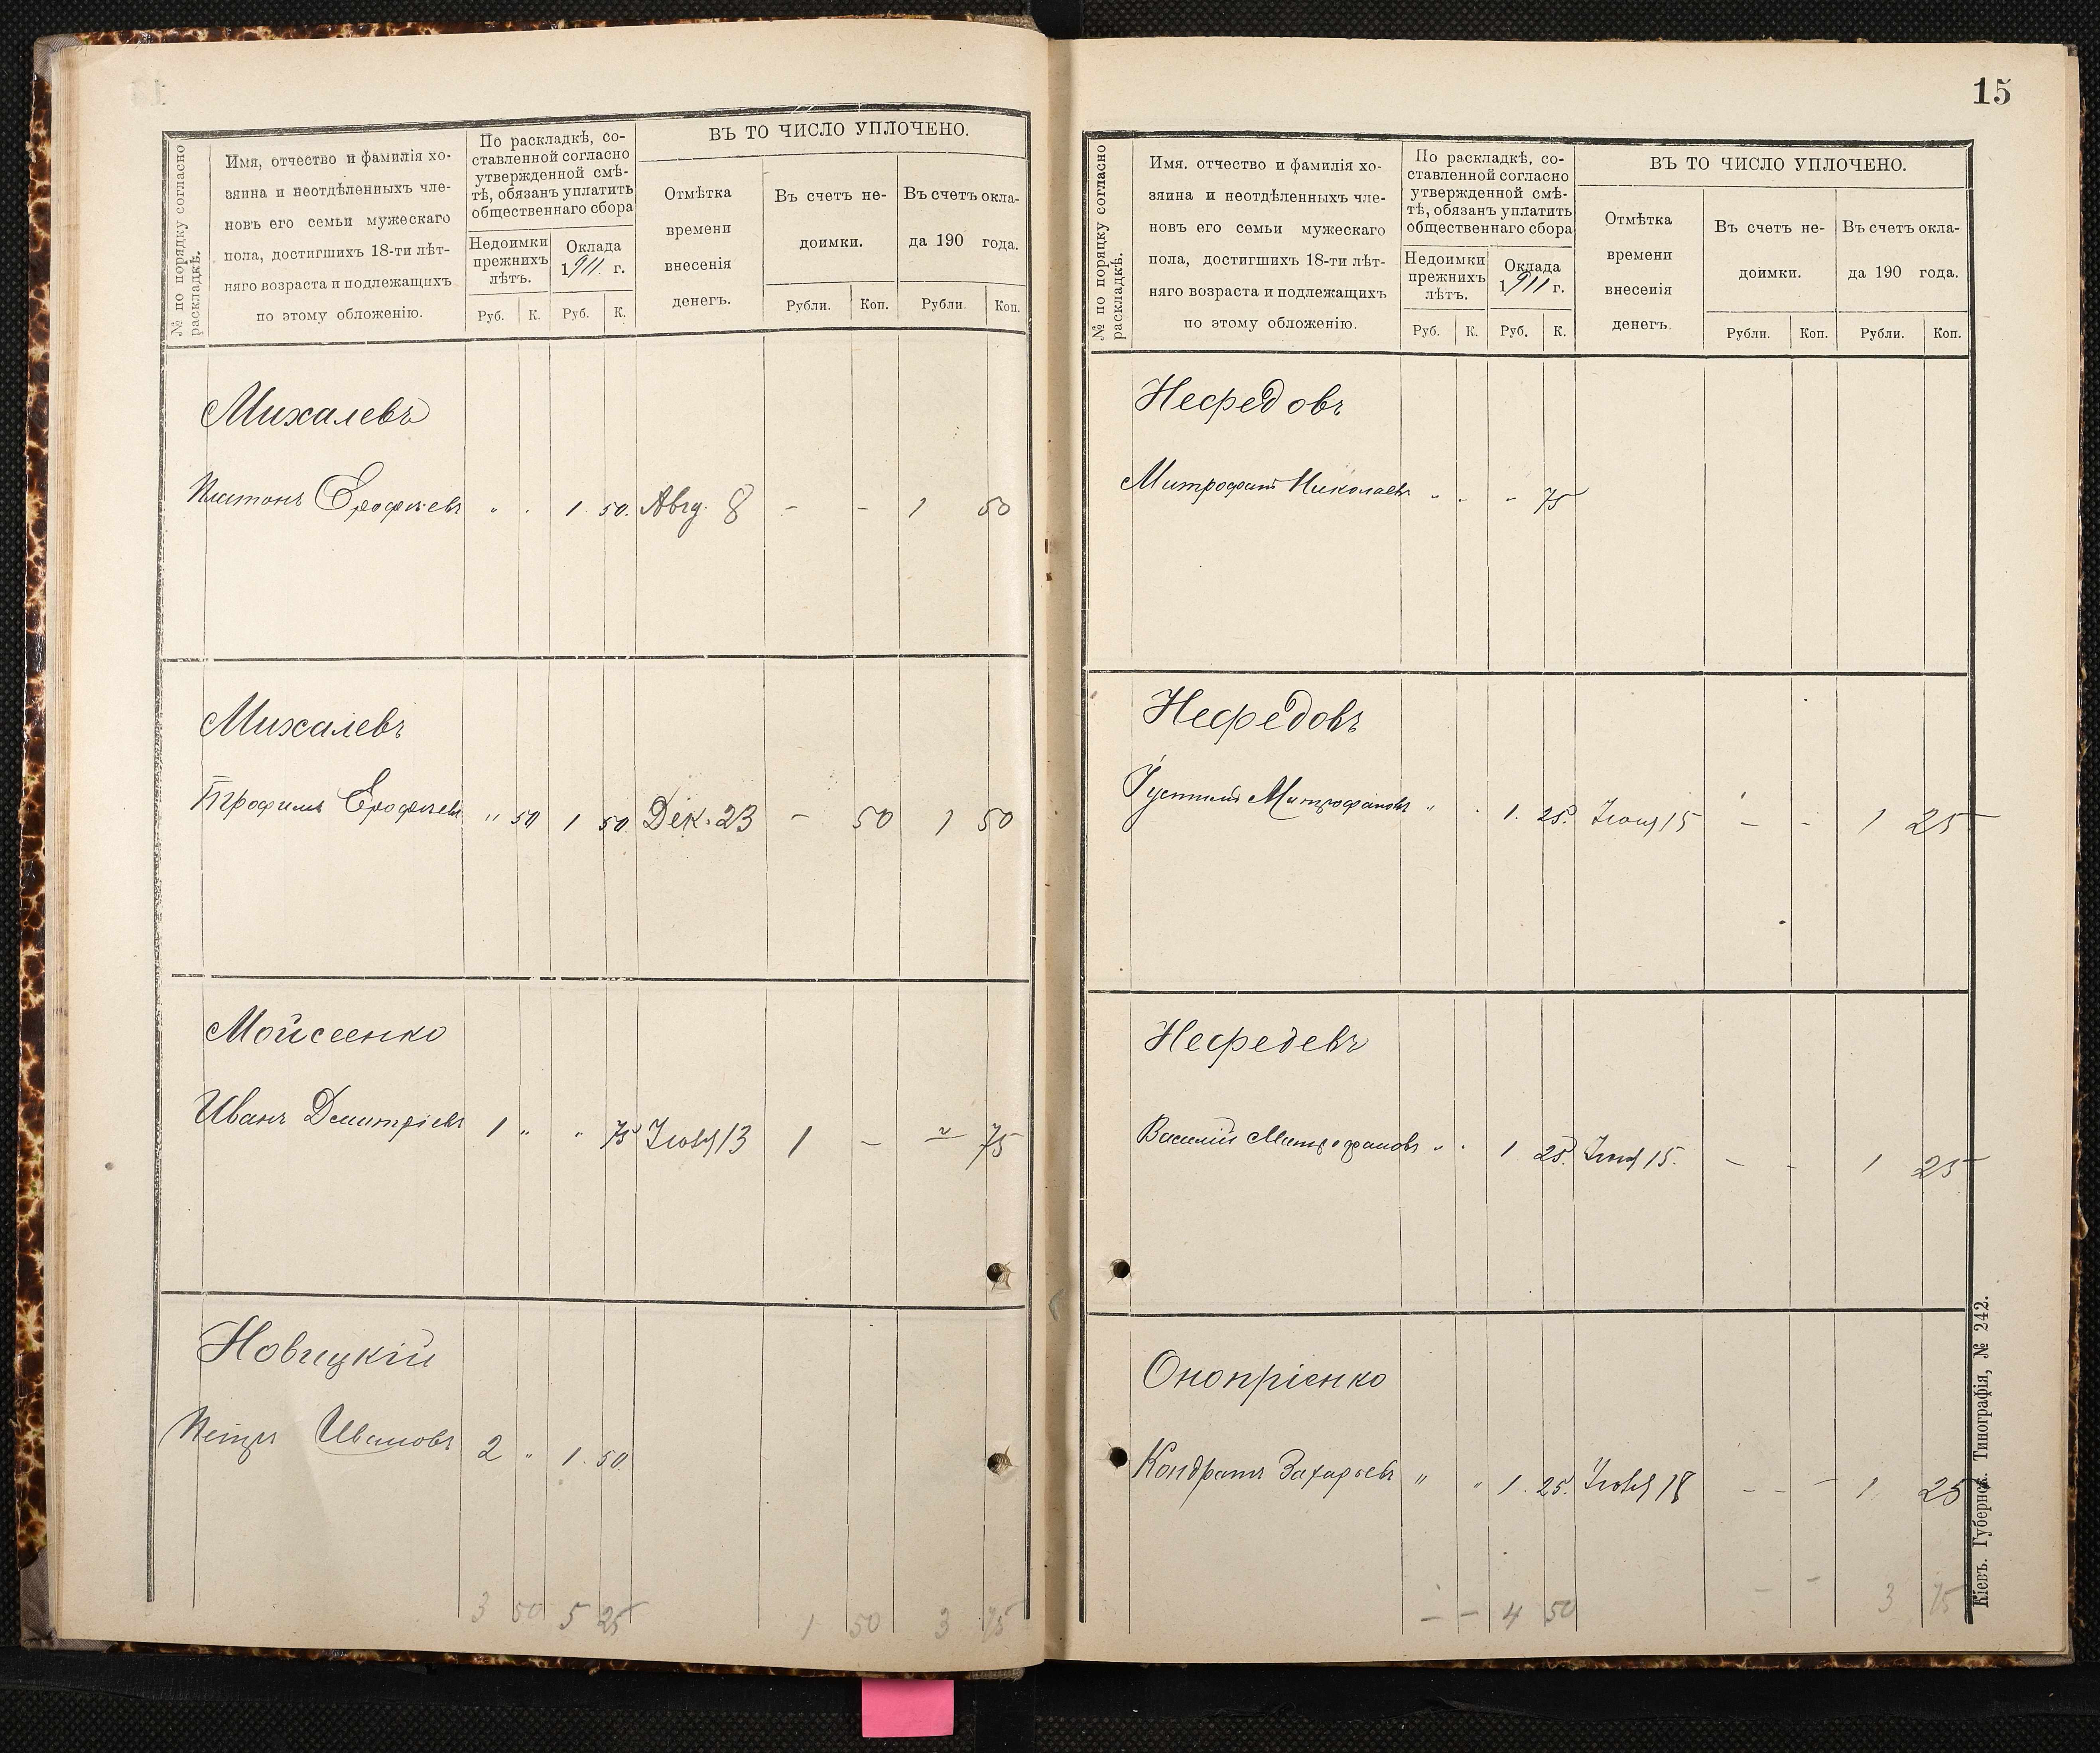 № по порядку согласно
раскладкѣ.
Имя, отчество и фамилія хо-
зяина и неотдѣленныхъ чле-
новъ его семьи мужескаго
пола, достигшихъ 18-ти лѣт-
няго возраста и подлежащихъ
по этому обложенію.
По раскладкѣ, со-
ставленной согласно
утвержденной смѣ-
тѣ, обязанъ уплатить
общественнаго сбора
Недоимки
прежнихъ
лѣтъ.
Оклада
1911 г.
Руб. К. Руб. К.
ВЪ ТО ЧИСЛО УПЛОЧЕНО.
Отмѣтка
времени
внесенія
денегъ.
Въ счетъ не-
доимки.
Въ счетъ окла-
да 190 года.
Рубли. Коп. Рубли. Коп.
Михалевъ
Платонъ Ерофѣевъ " . 1 50. Авгу. 8 - - 1 50
Михалевъ
Трофимъ Ерофѣевъ " 50 1 50. Дек. 23 - 50 1 50
Мойсеенко
Иванъ Дмитріевъ 1 " " 75 Іюля 13 1 - " 75
Новицкій
Петръ Ивановъ 2 " 1. 50.
3 50 5 25 1 50 3 75
15
№ по поряцку согласно
раскладкѣ.
Имя. отчество и фамилія хо-
зяина и неотдѣленныхъ чле-
новъ его семьи мужескаго
пола, достигшихъ 18-ти лѣт-
няго возраста и подлежащихъ
по этому обложенію.
По раскладкѣ, со-
ставленной согласно
утвержденной смѣ-
тѣ, обязанъ уплатить
общественнаго сбора
Недоимки
прежнихъ
лѣтъ.
Оклада
1911 г.
Руб. К. Руб. К.
ВЪ ТО ЧИСЛО УПЛОЧЕНО.
Отмѣтка
времени
внесенія
денегъ.
Въ счетъ не-
доимки.
Въ счетъ окла-
да 190 года.
Рубли. Коп. Рубли. Коп.
Нефедовъ
Митрофанъ Николаевъ " . " 75
Нефедовъ
Митрофановъ " . 1. 25. 15 - - 1 25
Нефедевъ
Василій Митрофановъ " . 1 25. 15. - - 1 25
Онопріенко
Кондратъ Захарьевъ " " 1. 25. Іюля 18 - - - 1. 25
- - 4 50 - - 3 75
Кіевъ. Губернск. Типографія, № 242.